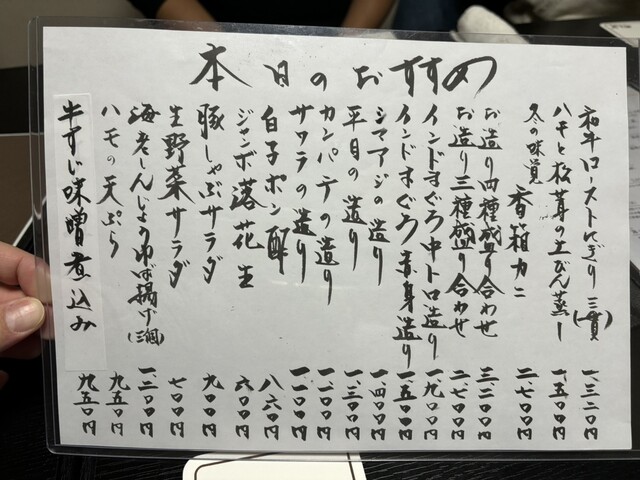 本日のおすすめ
和牛ローストにぎり(三貫) 一、三二〇円
ハモと松茸の土びん蒸し 一、五〇〇円
冬の味覚 香箱カニ 二、七〇〇円
お造り四種盛り合わせ 三、二〇〇円
お造り三種盛り合わせ 二、七〇〇円
インドまぐろ中トロ造り 一、九〇〇円
インドまぐろ赤身造り 一、五〇〇円
シマアジの造り 一、四〇〇円
平目の造り 一、三〇〇円
カンパチの造り 一、二〇〇円
サワラの造り 一、一〇〇円
白子ポン酢 八六〇円
ジャンボ落花生 六〇〇円
豚しゃぶサラダ 九〇〇円
生野菜サラダ 七〇〇円
海老しんじょうゆば揚げ(三個) 一、二〇〇円
ハモの天ぷら 九五〇円
牛すじ味噌煮込み 九五〇円